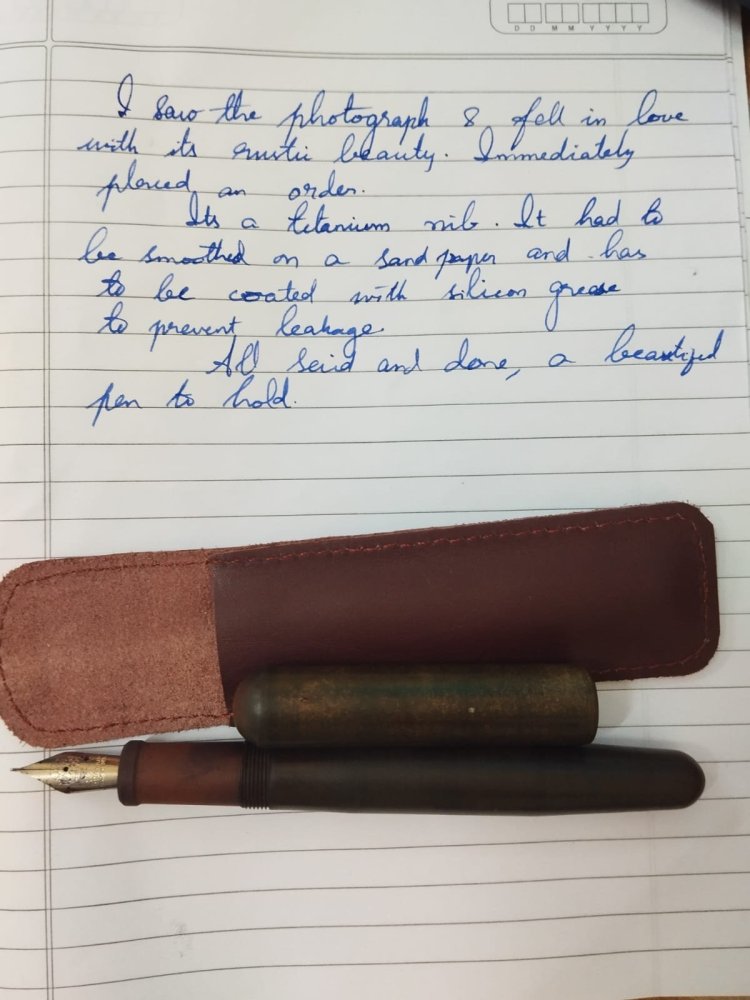 D D M M Y Y Y Y
I saw the photograph & fell in love
with its rustic beauty. Immediately
placed an order.
Its a titanium nib. It had to
be smoothed on a sand paper and has
to be coated with silicon grease
to prevent leakage.
All said and done, a beautiful
pen to hold.